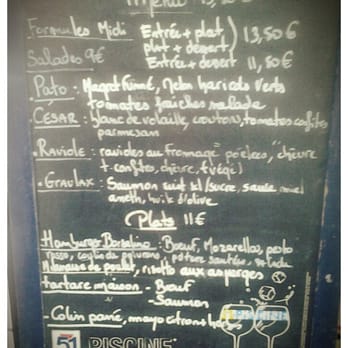 Menu
Formules Midi Entrée + plat
plat + dessert 13,50€
Entrée + desert 11,50€
Salades 9€
. Pato : Magret fumé, Melon haricots verts
tomates fraîches salade
. César : blanc de volaille, croutons, tomates confites
parmesan
. Raviole : ravioles au fromage "poêlées", chèvre
t-confites, chèvre,
. Gravlax : Saumon sel/sucre, sauce miel
aneth, huile d'olive
Plats 11€
Hamburger Borsalino - Boeuf, Mozzarella, pesto
rosso, poivrons salade
de poulet, risotto aux asperges
tartare maison - Boeuf
- Saumon
- Colin pané, mayo citron
51 PISCINE
PISCINE